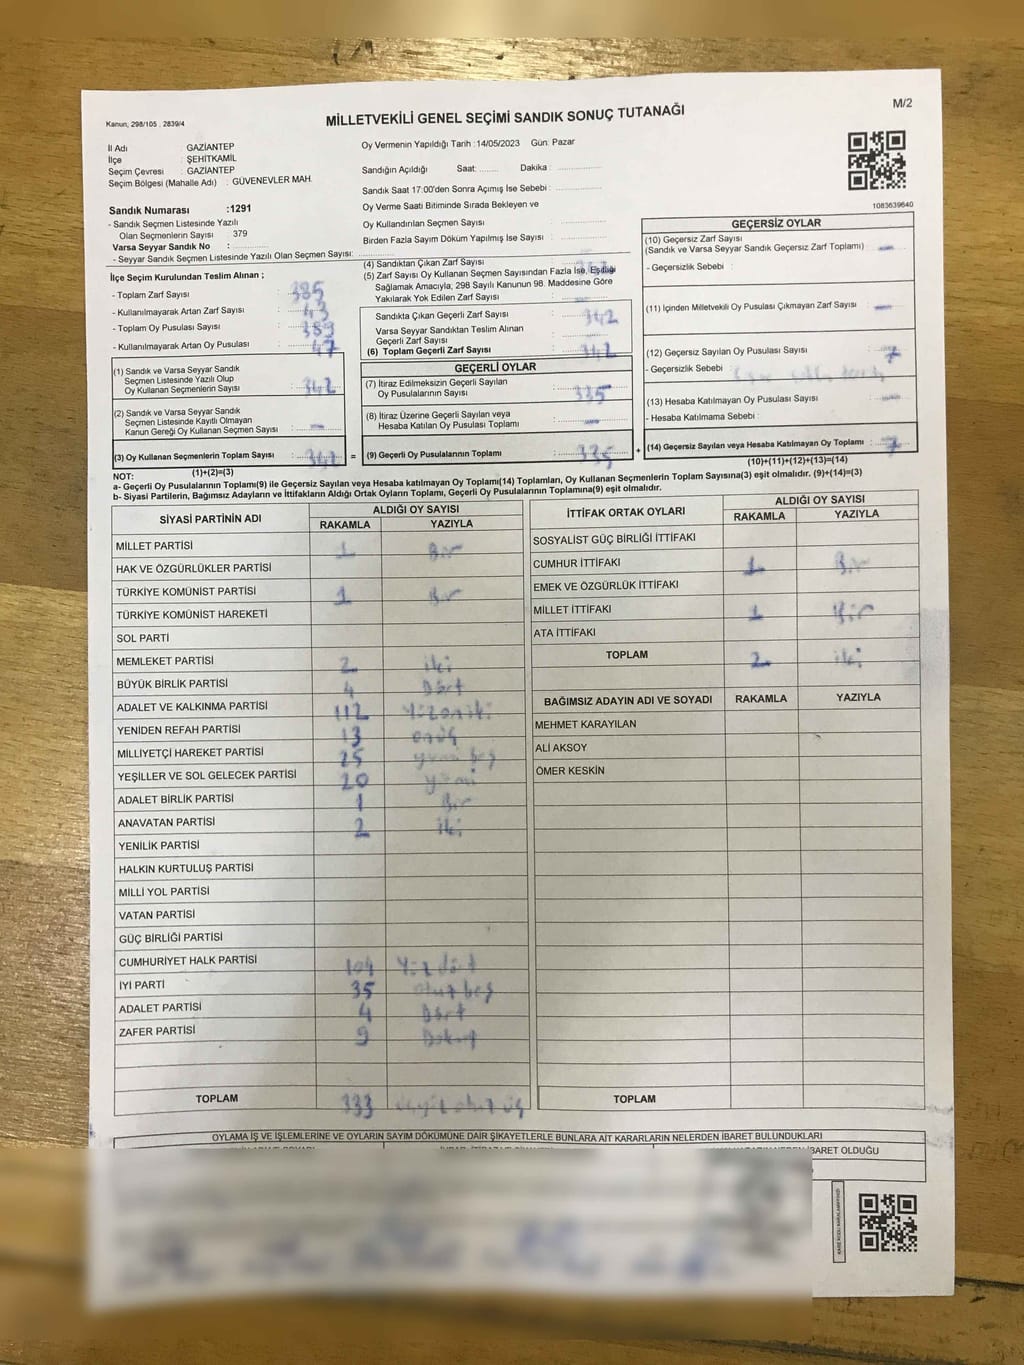 Kanun; 298/105 , 2839/4
MİLLETVEKİLİ GENEL SEÇİMİ SANDIK SONUÇ TUTANAĞI
M/2
İl Adı GAZİANTEP
İlçe : ŞEHİTKAMİL
Seçim Çevresi : GAZİANTEP
Seçim Bölgesi (Mahalle Adı) : GÜVENEVLER MAH.
Oy Vermenin Yapıldığı Tarih : 14/05/2023 Gün: Pazar
Sandığın Açıldığı Saat: ........ Dakika : ..............
Sandık Saat 17:00'den Sonra Açımış İse Sebebi : ..............
Oy Verme Saati Bitiminde Sırada Bekleyen ve
Oy Kullandırılan Seçmen Sayısı : ..............
Birden Fazla Sayım Döküm Yapılmış İse Sayısı : ..............
1083639640
Sandık Numarası :1291
- Sandık Seçmen Listesinde Yazılı
Olan Seçmenlerin Sayısı 379
Varsa Seyyar Sandık No : ............
- Seyyar Sandık Seçmen Listesinde Yazılı Olan Seçmen Sayısı: ..............
İlçe Seçim Kurulundan Teslim Alınan ;
- Toplam Zarf Sayısı : 385
- Kullanılmayarak Artan Zarf Sayısı : 43
- Toplam Oy Pusulası Sayısı : 389
- Kullanılmayarak Artan Oy Pusulası : 47
(1) Sandık ve Varsa Seyyar Sandık
Seçmen Listesinde Yazılı Olup
Oy Kullanan Seçmenlerin Sayısı : 342
(2) Sandık ve Varsa Seyyar Sandık
Seçmen Listesinde Kayıtlı Olmayan
Kanun Gereği Oy Kullanan Seçmen Sayısı : —
(3) Oy Kullanan Seçmenlerin Toplam Sayısı : 342 =
(1)+(2)=(3)
(4) Sandıktan Çıkan Zarf Sayısı :
(5) Zarf Sayısı Oy Kullanan Seçmen Sayısından Fazla İse, Eşitliği
Sağlamak Amacıyla, 298 Sayılı Kanunun 98. Maddesine Göre
Yakılarak Yok Edilen Zarf Sayısı : —
Sandıkta Çıkan Geçerli Zarf Sayısı : 342
Varsa Seyyar Sandıktan Teslim Alınan
Geçerli Zarf Sayısı :
(6) Toplam Geçerli Zarf Sayısı : 342
GEÇERLİ OYLAR
(7) İtiraz Edilmeksizin Geçerli Sayılan
Oy Pusulalarının Sayısı : 335
(8) İtiraz Üzerine Geçerli Sayılan veya
Hesaba Katılan Oy Pusulası Toplamı : —
(9) Geçerli Oy Pusulalarının Toplamı : 335 +
GEÇERSİZ OYLAR
(10) Geçersiz Zarf Sayısı
(Sandık ve Varsa Seyyar Sandık Geçersiz Zarf Toplamı) : —
- Geçersizlik Sebebi :
(11) İçinden Milletvekili Oy Pusulası Çıkmayan Zarf Sayısı : —
(12) Geçersiz Sayılan Oy Pusulası Sayısı : 7
- Geçersizlik Sebebi :
(13) Hesaba Katılmayan Oy Pusulası Sayısı : —
- Hesaba Katılmama Sebebi :
(14) Geçersiz Sayılan veya Hesaba Katılmayan Oy Toplamı : 7
(10)+(11)+(12)+(13)=(14)
NOT:
a- Geçerli Oy Pusulalarının Toplamı(9) ile Geçersiz Sayılan veya Hesaba katılmayan Oy Toplamı(14) Toplamları, Oy Kullanan Seçmenlerin Toplam Sayısına(3) eşit olmalıdır. (9)+(14)=(3)
b- Siyasi Partilerin, Bağımsız Adayların ve İttifakların Aldığı Ortak Oyların Toplamı, Geçerli Oy Pusulalarının Toplamına(9) eşit olmalıdır.
SİYASİ PARTİNİN ADI ALDIĞI OY SAYISI
RAKAMLA YAZIYLA
MİLLET PARTİSİ 1 Bir
HAK VE ÖZGÜRLÜKLER PARTİSİ
TÜRKİYE KOMÜNİST PARTİSİ 1 Bir
TÜRKİYE KOMÜNİST HAREKETİ
SOL PARTİ
MEMLEKET PARTİSİ 2 iki
BÜYÜK BİRLİK PARTİSİ 4 Dört
ADALET VE KALKINMA PARTİSİ 112 Yüzoniki
YENİDEN REFAH PARTİSİ 13 onüç
MİLLİYETÇİ HAREKET PARTİSİ 25 yirmi beş
YEŞİLLER VE SOL GELECEK PARTİSİ 20 yirmi
ADALET BİRLİK PARTİSİ 1 Bir
ANAVATAN PARTİSİ 2 iki
YENİLİK PARTİSİ
HALKIN KURTULUŞ PARTİSİ
MİLLİ YOL PARTİSİ
VATAN PARTİSİ
GÜÇ BİRLİĞİ PARTİSİ
CUMHURİYET HALK PARTİSİ 104 Yüz dört
İYİ PARTİ 35 otuz beş
ADALET PARTİSİ 4 Dört
ZAFER PARTİSİ 9 Dokuz
TOPLAM 333 üçyüz otuz üç
İTTİFAK ORTAK OYLARI ALDIĞI OY SAYISI
RAKAMLA YAZIYLA
SOSYALİST GÜÇ BİRLİĞİ İTTİFAKI
CUMHUR İTTİFAKI 1 Bir
EMEK VE ÖZGÜRLÜK İTTİFAKI
MİLLET İTTİFAKI 1 Bir
ATA İTTİFAKI
TOPLAM 2 iki
BAĞIMSIZ ADAYIN ADI VE SOYADI RAKAMLA YAZIYLA
MEHMET KARAYILAN
ALİ AKSOY
ÖMER KESKİN
TOPLAM
OYLAMA İŞ VE İŞLEMLERİNE VE OYLARIN SAYIM DÖKÜMÜNE DAİR ŞİKAYETLERLE BUNLARA AİT KARARLARIN NELERDEN İBARET BULUNDUKLARI
İBARET OLDUĞU